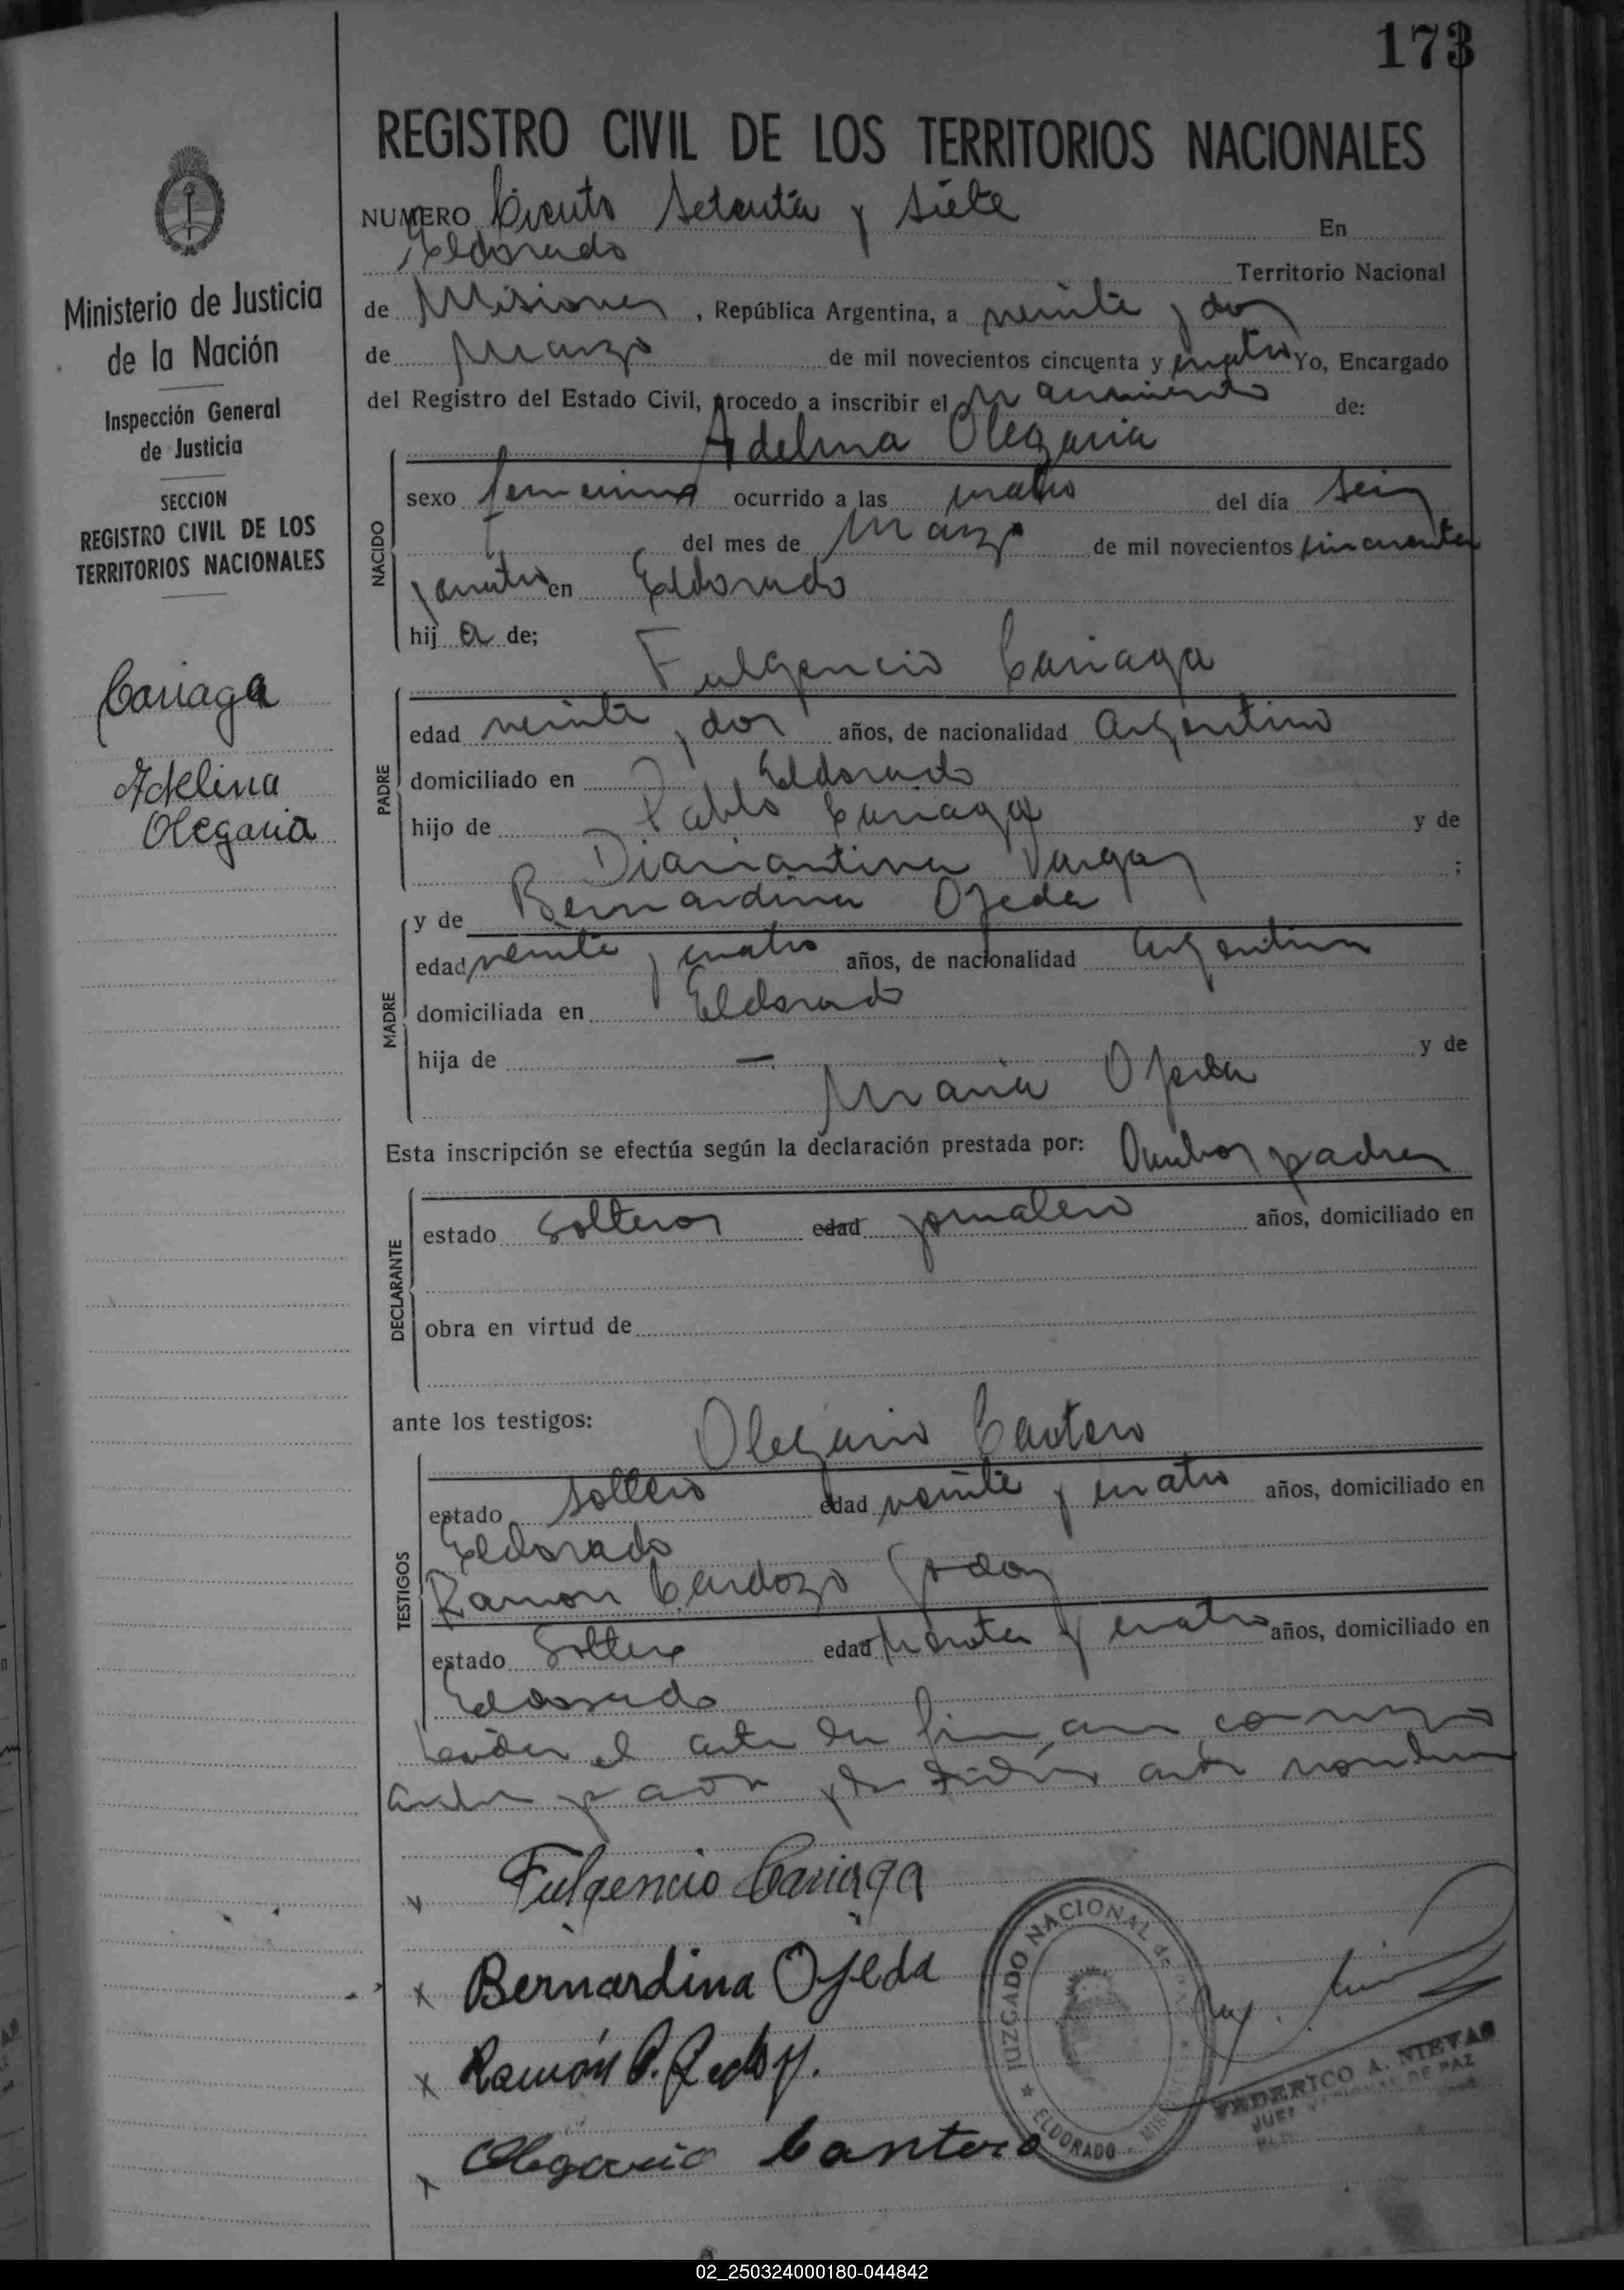 173
REGISTRO CIVIL DE LOS TERRITORIOS NACIONALES
NUMERO Ciento Setenta y Siete En
Eldorado Territorio Nacional
de Misiones, República Argentina, a veinte y dos
de Marzo de mil novecientos cincuenta y cuatro Yo, Encargado
del Registro del Estado Civil, procedo a inscribir el nacimiento de:
Adelina Olegaria
NACIDO
sexo femenino ocurrido a las cuatro del día seis
del mes de Marzo de mil novecientos cincuenta
y cuatro en Eldorado
hij a de;
Fulgencio Cariaga
PADRE
edad veinte y dos años, de nacionalidad Argentino
domiciliado en Eldorado
hijo de Pablo Cariaga y de
Diamantina Vargas ;
y de Bernardina Ojeda
MADRE
edad veinte y cuatro años, de nacionalidad Argentina
domiciliada en Eldorado
hija de — y de
Maria Ojeda
Esta inscripción se efectúa según la declaración prestada por: Ambos padres
DECLARANTE
estado Solteros edad jornalero años, domiciliado en
obra en virtud de
ante los testigos:
Olegario Cantero
TESTIGOS
estado soltero edad veinte y cuatro años, domiciliado en
Eldorado
Ramon Cardozo Godoy
estado Soltero edad y cuatro años, domiciliado en
Eldorado
el acta
Fulgencio Cariaga
Bernardina Ojeda
Ramón C. Godoy.
Olegario Cantero
JUZGADO NACIONAL de
ELDORADO - MISIONES
FEDERICO A. NIEVAS
JUEZ NACIONAL DE PAZ
Ministerio de Justicia
de la Nación
Inspección General
de Justicia
SECCION
REGISTRO CIVIL DE LOS
TERRITORIOS NACIONALES
Cariaga
Adelina
Olegaria
02_250324000180-044842